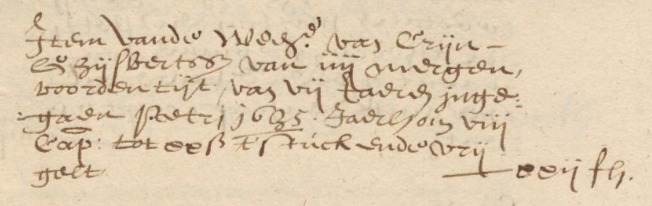 Item vande Wed:e van Crijn
Ghijsbertsz van iiij mergen,
voorden tijt, van vij Jaeren inge-
gaen petri 1635. Jaerlx om viij
Cap: tot xxß tstuck ende vrij
gelt
xxij fh.